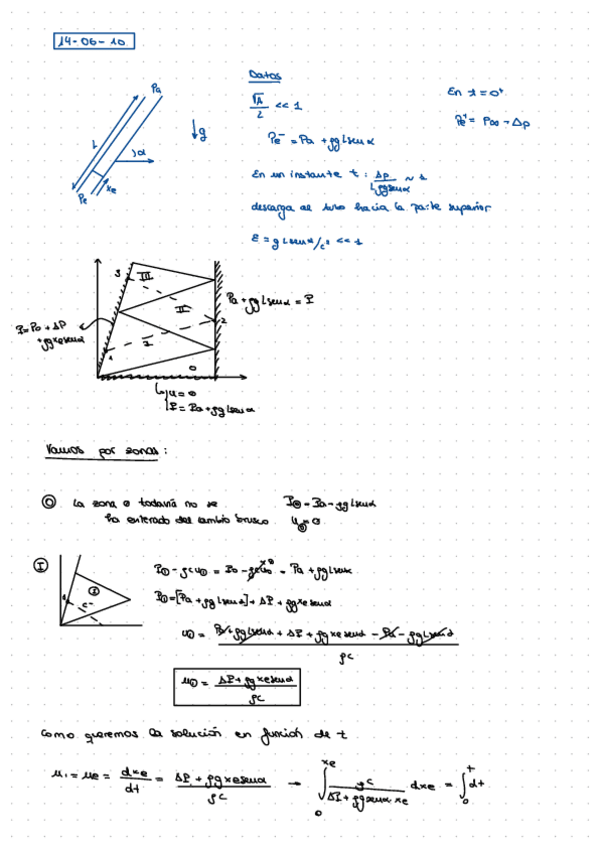 14-06-10
Pa
L
g
α
xe
Pe
Datos
√A / L << 1
Pe⁻ = Pa + ρg L senα
En un instante t : Δp / Lρg senα ~ 1
descarga del tubo hacia la parte superior
ε = g L senα / c² << 1
En t = 0⁺
Pe⁺ = P∞ + Δp
3
III
II
2
I
1
0
Pa + ρg L senα = P
P = Po + ΔP
+ ρg xe senα
u = 0
P = Pa + ρg L senα
Vamos por zonas :
⓪ La zona 0 todavía no se
ha enterado del cambio brusco
P⓪ = Pa - ρg L senα
u⓪ = 0
Ⓘ
①
1
c⁻
P① - ρc u① = Po - ρc u₀ = Pa + ρg L senα
P① = [Pa + ρg L senα] + ΔP + ρg xe senα
u① = Pa + ρg L senα + ΔP + ρg xe senα - Pa - ρg L senα / ρc
u① = ΔP + ρg xe senα / ρc
Como queremos la solución en función de t
u₁ = ue = dxe / dt = ΔP + ρg xe senα / ρc → ∫₀^xe ρc / ΔP + ρg senα · xe dxe = ∫₀^t dt